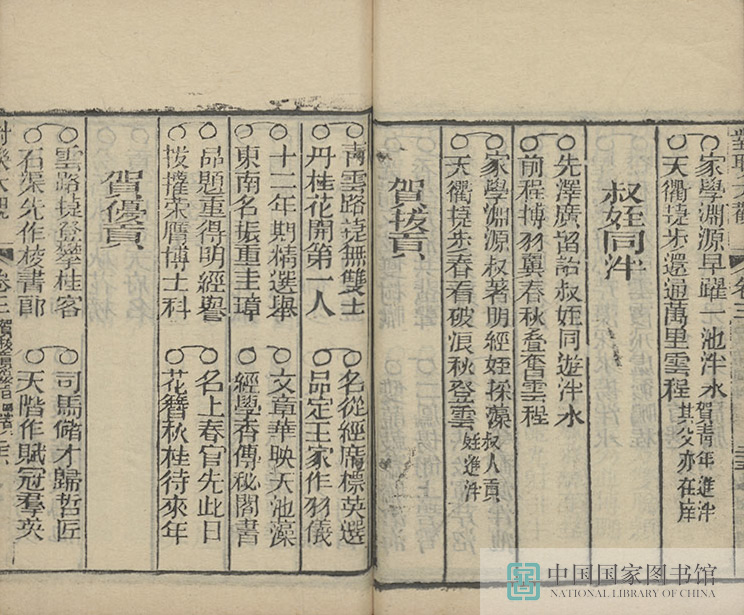 對聯大觀
家學淵源早躍一池泮水 賀靑年進泮其父亦在庠
天衢捷步還過萬里雲程
叔姪同泮
先澤廣詒叔姪同遊泮水
前程博羽翼春秋叠奮雲程
家學淵源叔著明經姪採藻 叔人貢姪進泮
天衢捷步春看破浪秋登雲
賀拔貢
靑雲路捷無雙士 名從經廣標英選
丹桂花開第一人 品定王家作羽儀
十二年期精選舉 文章華映天池藻
東南名振重圭璋 經學香傳秘閣書
品題重得明經譽 名上春官先此日
拔擢荣膺博士科 花簪秋桂待來年
賀優貢
雲路捷登攀桂客 司馬儲才歸哲匠
石渠先作校書郎 天階作賦冠羣英
對聯大觀 卷三
中国国家图书馆
NATIONAL LIBRARY OF CHINA